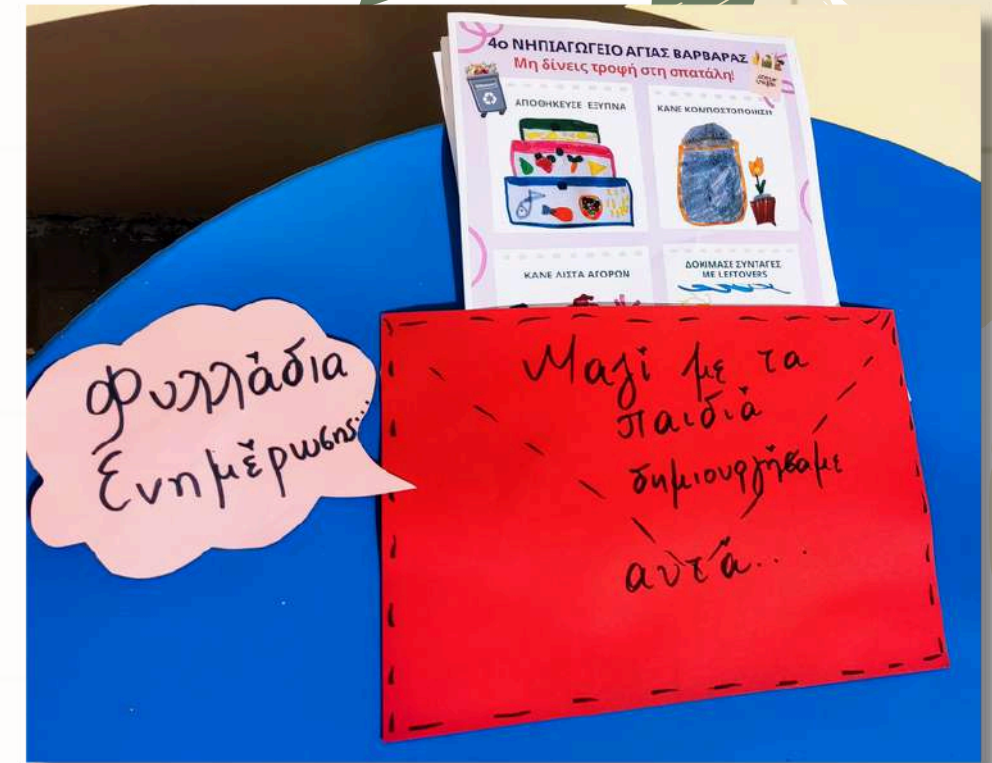 4ο ΝΗΠΙΑΓΩΓΕΙΟ ΑΓΙΑΣ ΒΑΡΒΑΡΑΣ
Μη δίνεις τροφή στη σπατάλη!
ΑΠΟΘΗΚΕΥΣΕ ΕΞΥΠΝΑ
ΚΑΝΕ ΚΟΜΠΟΣΤΟΠΟΙΗΣΗ
ΚΑΝΕ ΛΙΣΤΑ ΑΓΟΡΩΝ
ΔΟΚΙΜΑΣΕ ΣΥΝΤΑΓΕΣ
ΜΕ LEFTOVERS
Φυλλάδια
Ενημέρωσης...
Μαζί με τα
παιδιά
δημιουργήσαμε
αυτά...